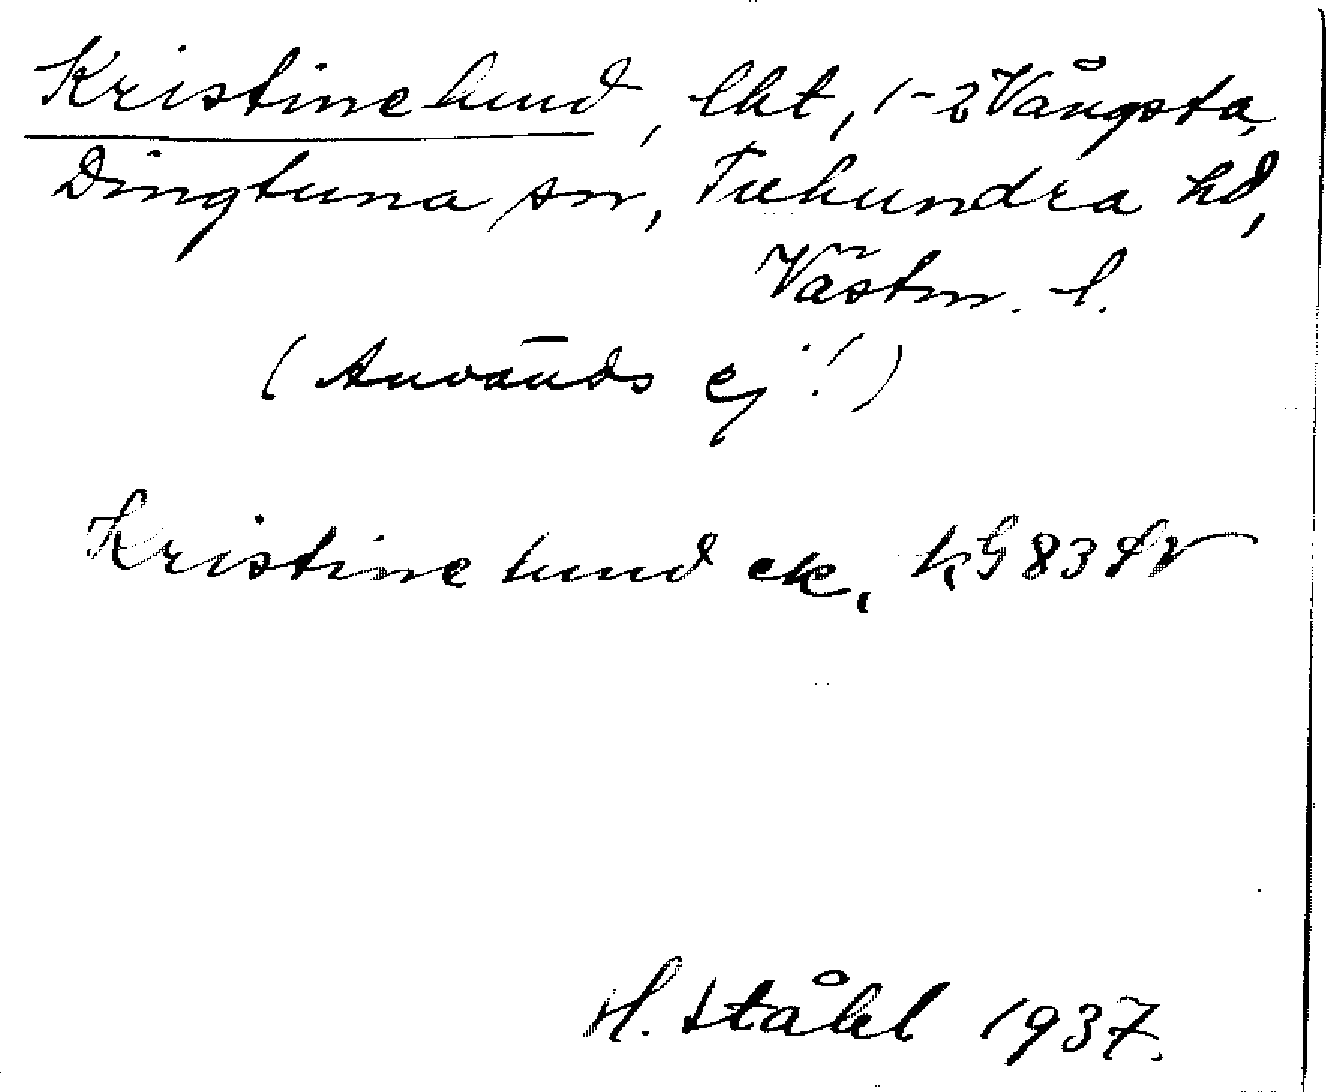 Kristinelund, lht, 1-2 Vångsta,
Dingtuna sn, Tuhundra hd,
Västm. l.
(Används ej!)
Kristinelund ek,
H. Ståhl 1937.